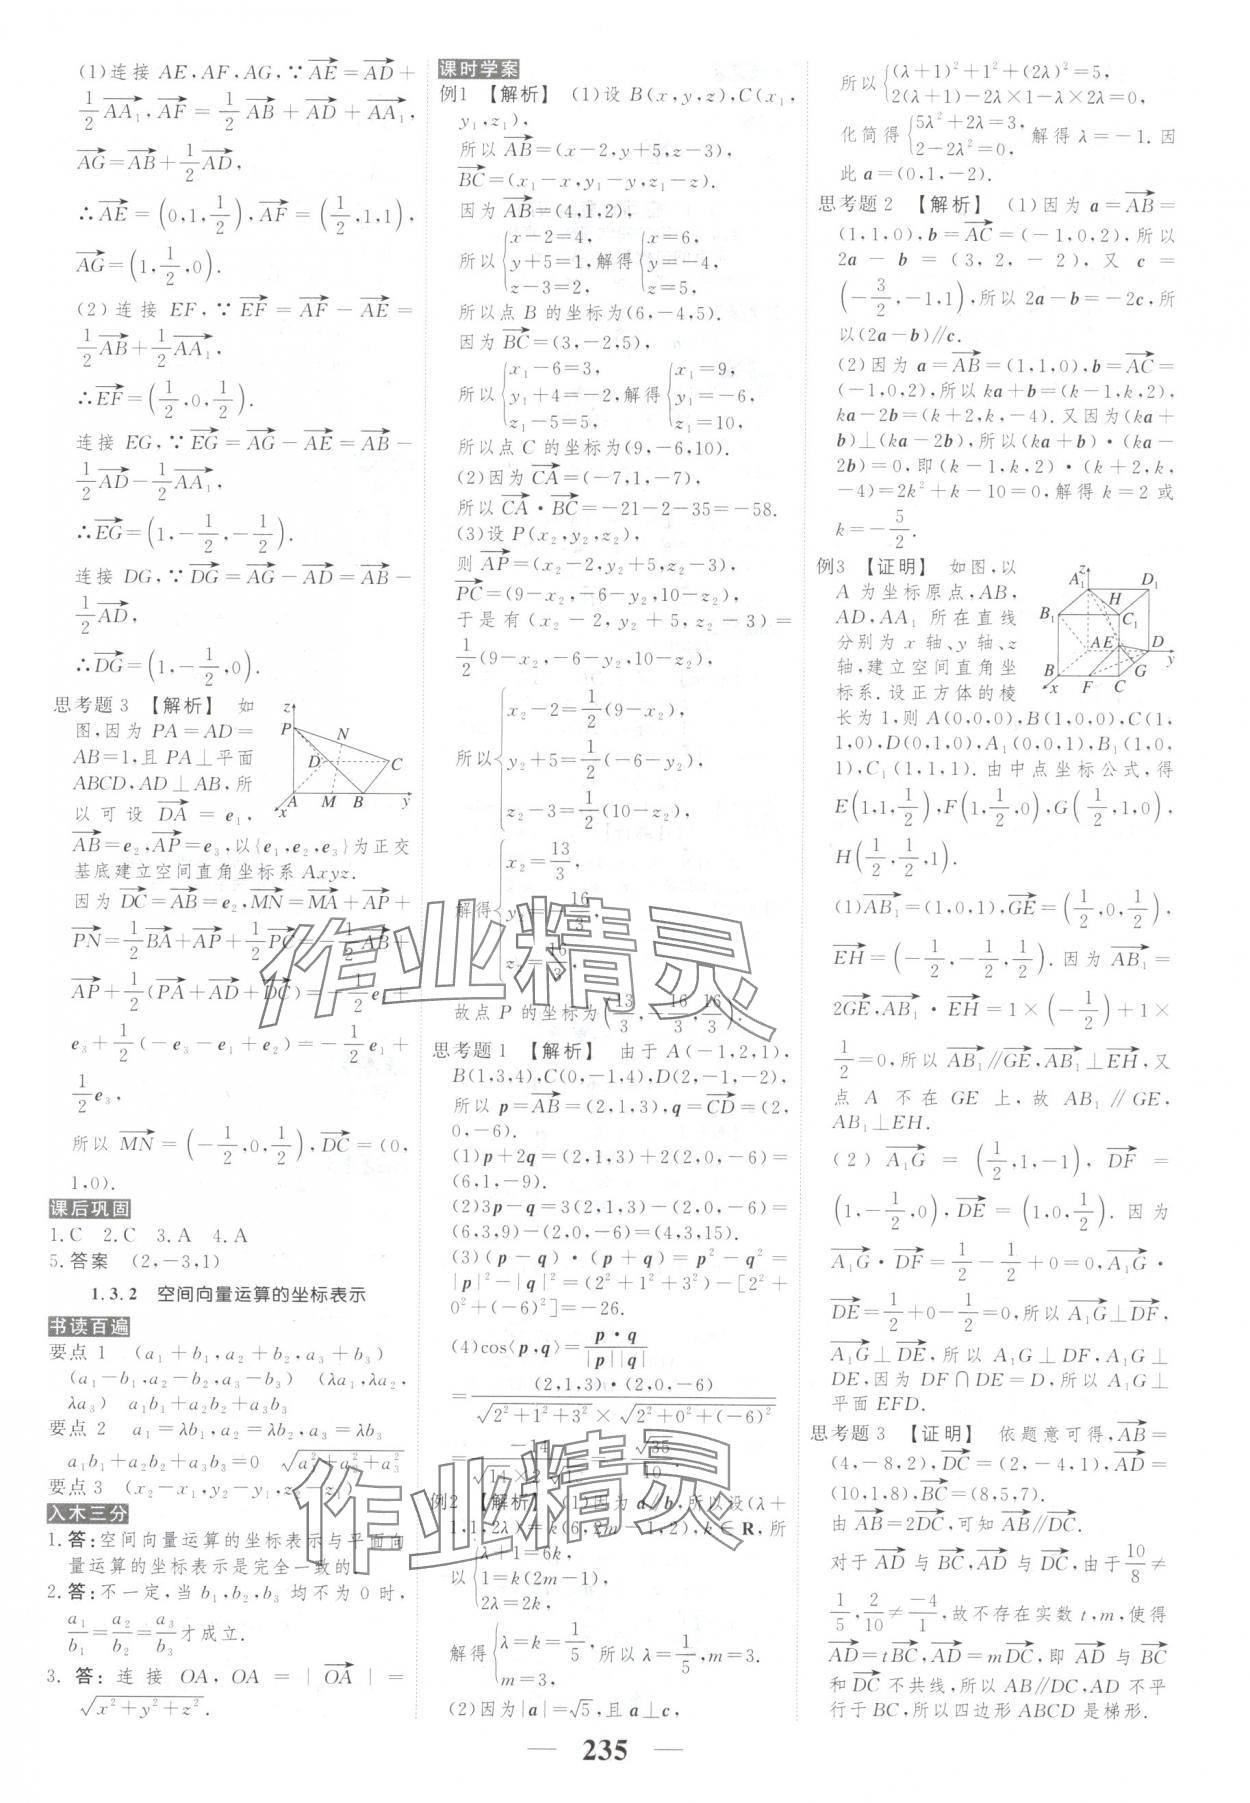 (1)连接 AE,AF,AG,∵$\overrightarrow{AE}=\overrightarrow{AD}+$
$\frac{1}{2}\overrightarrow{AA_1},\overrightarrow{AF}=\frac{1}{2}\overrightarrow{AB}+\overrightarrow{AD}+\overrightarrow{AA_1},$
$\overrightarrow{AG}=\overrightarrow{AB}+\frac{1}{2}\overrightarrow{AD},$
∴$\overrightarrow{AE}=\left(0,1,\frac{1}{2}\right),\overrightarrow{AF}=\left(\frac{1}{2},1,1\right),$
$\overrightarrow{AG}=\left(1,\frac{1}{2},0\right).$
(2)连接 EF,∵$\overrightarrow{EF}=\overrightarrow{AF}-\overrightarrow{AE}=$
$\frac{1}{2}\overrightarrow{AB}+\frac{1}{2}\overrightarrow{AA_1},$
∴$\overrightarrow{EF}=\left(\frac{1}{2},0,\frac{1}{2}\right).$
连接 EG,∵$\overrightarrow{EG}=\overrightarrow{AG}-\overrightarrow{AE}=\overrightarrow{AB}-$
$\frac{1}{2}\overrightarrow{AD}-\frac{1}{2}\overrightarrow{AA_1},$
∴$\overrightarrow{EG}=\left(1,-\frac{1}{2},-\frac{1}{2}\right).$
连接 DG,∵$\overrightarrow{DG}=\overrightarrow{AG}-\overrightarrow{AD}=\overrightarrow{AB}-$
$\frac{1}{2}\overrightarrow{AD},$
∴$\overrightarrow{DG}=\left(1,-\frac{1}{2},0\right).$
思考题3 【解析】 如
图,因为 PA=AD=
AB=1,且 PA⊥平面
ABCD,AD⊥AB,所
以可设 $\overrightarrow{DA}=e_1,$
z P N D C A M B y x
$\overrightarrow{AB}=e_2,\overrightarrow{AP}=e_3$,以{$e_1,e_2,e_3$}为正交
基底建立空间直角坐标系 Axyz.
因为 $\overrightarrow{DC}=\overrightarrow{AB}=e_2,\overrightarrow{MN}=\overrightarrow{MA}+\overrightarrow{AP}+$
$\overrightarrow{PN}=\frac{1}{2}\overrightarrow{BA}+\overrightarrow{AP}+\frac{1}{2}\overrightarrow{PC}=-\frac{1}{2}\overrightarrow{AB}+$
$\overrightarrow{AP}+\frac{1}{2}(\overrightarrow{PA}+\overrightarrow{AD}+\overrightarrow{DC})=-\frac{1}{2}e_2+$
$e_3+\frac{1}{2}(-e_3-e_1+e_2)=-\frac{1}{2}e_1+$
$\frac{1}{2}e_3,$
所以 $\overrightarrow{MN}=\left(-\frac{1}{2},0,\frac{1}{2}\right),\overrightarrow{DC}=(0,$
1,0).
课后巩固
1.C 2.C 3.A 4.A
5.答案 (2,-3,1)
1.3.2 空间向量运算的坐标表示
书读百遍
要点1 $(a_1+b_1,a_2+b_2,a_3+b_3)$
$(a_1-b_1,a_2-b_2,a_3-b_3)$ $(λa_1,λa_2,$
$λa_3)$ $a_1b_1+a_2b_2+a_3b_3$
要点2 $a_1=λb_1,a_2=λb_2,a_3=λb_3$
$a_1b_1+a_2b_2+a_3b_3=0$ $\sqrt{a_1^2+a_2^2+a_3^2}$
要点3 $(x_2-x_1,y_2-y_1,z_2-z_1)$
入木三分
1.答:空间向量运算的坐标表示与平面向
量运算的坐标表示是完全一致的.
2.答:不一定,当 $b_1,b_2,b_3$ 均不为0时,
$\frac{a_1}{b_1}=\frac{a_2}{b_2}=\frac{a_3}{b_3}$才成立.
3.答:连接 OA,OA=|$\overrightarrow{OA}$|=
$\sqrt{x^2+y^2+z^2}.$
课时学案
例1 【解析】 (1)设 B(x,y,z),C($x_1,$
$y_1,z_1$),
所以 $\overrightarrow{AB}=(x-2,y+5,z-3),$
$\overrightarrow{BC}=(x_1-x,y_1-y,z_1-z).$
因为 $\overrightarrow{AB}=(4,1,2),$
所以$\begin{cases}x-2=4,\\y+5=1,\\z-3=2,\end{cases}$解得$\begin{cases}x=6,\\y=-4,\\z=5,\end{cases}$
所以点 B 的坐标为(6,-4,5).
因为 $\overrightarrow{BC}=(3,-2,5),$
所以$\begin{cases}x_1-6=3,\\y_1+4=-2,\\z_1-5=5,\end{cases}$解得$\begin{cases}x_1=9,\\y_1=-6,\\z_1=10,\end{cases}$
所以点 C 的坐标为(9,-6,10).
(2)因为 $\overrightarrow{CA}=(-7,1,-7),$
所以 $\overrightarrow{CA}·\overrightarrow{BC}=-21-2-35=-58.$
(3)设 P($x_2,y_2,z_2$),
则 $\overrightarrow{AP}=(x_2-2,y_2+5,z_2-3),$
$\overrightarrow{PC}=(9-x_2,-6-y_2,10-z_2),$
于是有$(x_2-2,y_2+5,z_2-3)=$
$\frac{1}{2}(9-x_2,-6-y_2,10-z_2),$
所以$\begin{cases}x_2-2=\frac{1}{2}(9-x_2),\\y_2+5=\frac{1}{2}(-6-y_2),\\z_2-3=\frac{1}{2}(10-z_2),\end{cases}$
解得$\begin{cases}x_2=\frac{13}{3},\\y_2=-\frac{16}{3},\\z_2=\frac{16}{3},\end{cases}$
故点 P 的坐标为$\left(\frac{13}{3},-\frac{16}{3},\frac{16}{3}\right).$
思考题1 【解析】 由于 A(-1,2,1),
B(1,3,4),C(0,-1,4),D(2,-1,-2),
所以 $p=\overrightarrow{AB}=(2,1,3),q=\overrightarrow{CD}=(2,$
0,-6).
(1)p+2q=(2,1,3)+2(2,0,-6)=
(6,1,-9).
(2)3p-q=3(2,1,3)-(2,0,-6)=
(6,3,9)-(2,0,-6)=(4,3,15).
(3)(p-q)·(p+q)=$p^2-q^2=$
$|p|^2-|q|^2=(2^2+1^2+3^2)-[2^2+$
$0^2+(-6)^2]=-26.$
(4)cos⟨p,q⟩=$\frac{p·q}{|p||q|}$
$=\frac{(2,1,3)·(2,0,-6)}{\sqrt{2^2+1^2+3^2}×\sqrt{2^2+0^2+(-6)^2}}$
$=\frac{-14}{\sqrt{14}×2\sqrt{10}}=-\frac{\sqrt{35}}{10}.$
例2 【解析】 (1)因为 a∥b,所以设(λ+
1,1,2λ)=k(6,2m-1,2),k∈R,所
以$\begin{cases}λ+1=6k,\\1=k(2m-1),\\2λ=2k,\end{cases}$
解得$\begin{cases}λ=k=\frac{1}{5},\\m=3,\end{cases}$所以 $λ=\frac{1}{5},m=3.$
(2)因为|a|=$\sqrt{5}$,且 a⊥c,
所以$\begin{cases}(λ+1)^2+1^2+(2λ)^2=5,\\2(λ+1)-2λ×1-λ×2λ=0,\end{cases}$
化简得$\begin{cases}5λ^2+2λ=3,\\2-2λ^2=0,\end{cases}$解得 λ=-1.因
此 a=(0,1,-2).
思考题2 【解析】 (1)因为 $a=\overrightarrow{AB}=$
(1,1,0),$b=\overrightarrow{AC}=(-1,0,2)$,所以
2a-b=(3,2,-2),又 c=
$\left(-\frac{3}{2},-1,1\right)$,所以 2a-b=-2c,所
以(2a-b)∥c.
(2)因为 $a=\overrightarrow{AB}=(1,1,0),b=\overrightarrow{AC}=$
(-1,0,2),所以 ka+b=(k-1,k,2),
ka-2b=(k+2,k,-4).又因为(ka+
b)⊥(ka-2b),所以(ka+b)·(ka-
2b)=0,即(k-1,k,2)·(k+2,k,
-4)=$2k^2+k-10=0$,解得 k=2 或
$k=-\frac{5}{2}.$
例3 【证明】 如图,以
A 为坐标原点,AB,
AD,$AA_1$ 所在直线
分别为 x 轴、y 轴、z
轴,建立空间直角坐
标系.设正方体的棱
z $A_1$ $D_1$ H $B_1$ $C_1$ A E D y B F C G x
长为1,则 A(0,0,0),B(1,0,0),C(1,
1,0),D(0,1,0),$A_1$(0,0,1),$B_1$(1,0,
1),$C_1$(1,1,1).由中点坐标公式,得
$E\left(1,1,\frac{1}{2}\right),F\left(1,\frac{1}{2},0\right),G\left(\frac{1}{2},1,0\right),$
$H\left(\frac{1}{2},\frac{1}{2},1\right).$
(1)$\overrightarrow{AB_1}=(1,0,1),\overrightarrow{GE}=\left(\frac{1}{2},0,\frac{1}{2}\right),$
$\overrightarrow{EH}=\left(-\frac{1}{2},-\frac{1}{2},\frac{1}{2}\right).$因为 $\overrightarrow{AB_1}=$
$2\overrightarrow{GE},\overrightarrow{AB_1}·\overrightarrow{EH}=1×\left(-\frac{1}{2}\right)+1×$
$\frac{1}{2}=0$,所以 $\overrightarrow{AB_1}∥\overrightarrow{GE},\overrightarrow{AB_1}⊥\overrightarrow{EH}$,又
点 A 不在 GE 上,故 $AB_1$∥GE,
$AB_1$⊥EH.
(2)$\overrightarrow{A_1G}=\left(\frac{1}{2},1,-1\right),\overrightarrow{DF}=$
$\left(1,-\frac{1}{2},0\right),\overrightarrow{DE}=\left(1,0,\frac{1}{2}\right).$因为
$\overrightarrow{A_1G}·\overrightarrow{DF}=\frac{1}{2}-\frac{1}{2}+0=0,\overrightarrow{A_1G}·$
$\overrightarrow{DE}=\frac{1}{2}+0-\frac{1}{2}=0$,所以 $\overrightarrow{A_1G}⊥\overrightarrow{DF},$
$\overrightarrow{A_1G}⊥\overrightarrow{DE}$,所以 $A_1G$⊥DF,$A_1G$⊥
DE,因为 DF∩DE=D,所以 $A_1G$⊥
平面 EFD.
思考题3 【证明】 依题意可得,$\overrightarrow{AB}=$
(4,-8,2),$\overrightarrow{DC}=(2,-4,1),\overrightarrow{AD}=$
(10,1,8),$\overrightarrow{BC}=(8,5,7).$
由 $\overrightarrow{AB}=2\overrightarrow{DC}$,可知 $\overrightarrow{AB}∥\overrightarrow{DC}.$
对于 $\overrightarrow{AD}$ 与 $\overrightarrow{BC}$,$\overrightarrow{AD}$ 与 $\overrightarrow{DC}$,由于$\frac{10}{8}≠$
$\frac{1}{5},\frac{2}{10}≠\frac{-4}{1}$,故不存在实数 t,m,使得
$\overrightarrow{AD}=t\overrightarrow{BC},\overrightarrow{AD}=m\overrightarrow{DC}$,即 $\overrightarrow{AD}$ 与 $\overrightarrow{BC}$
和 $\overrightarrow{DC}$ 不共线,所以 AB∥DC,AD 不平
行于 BC,所以四边形 ABCD 是梯形.
作业精灵
作业精灵
— 235 —